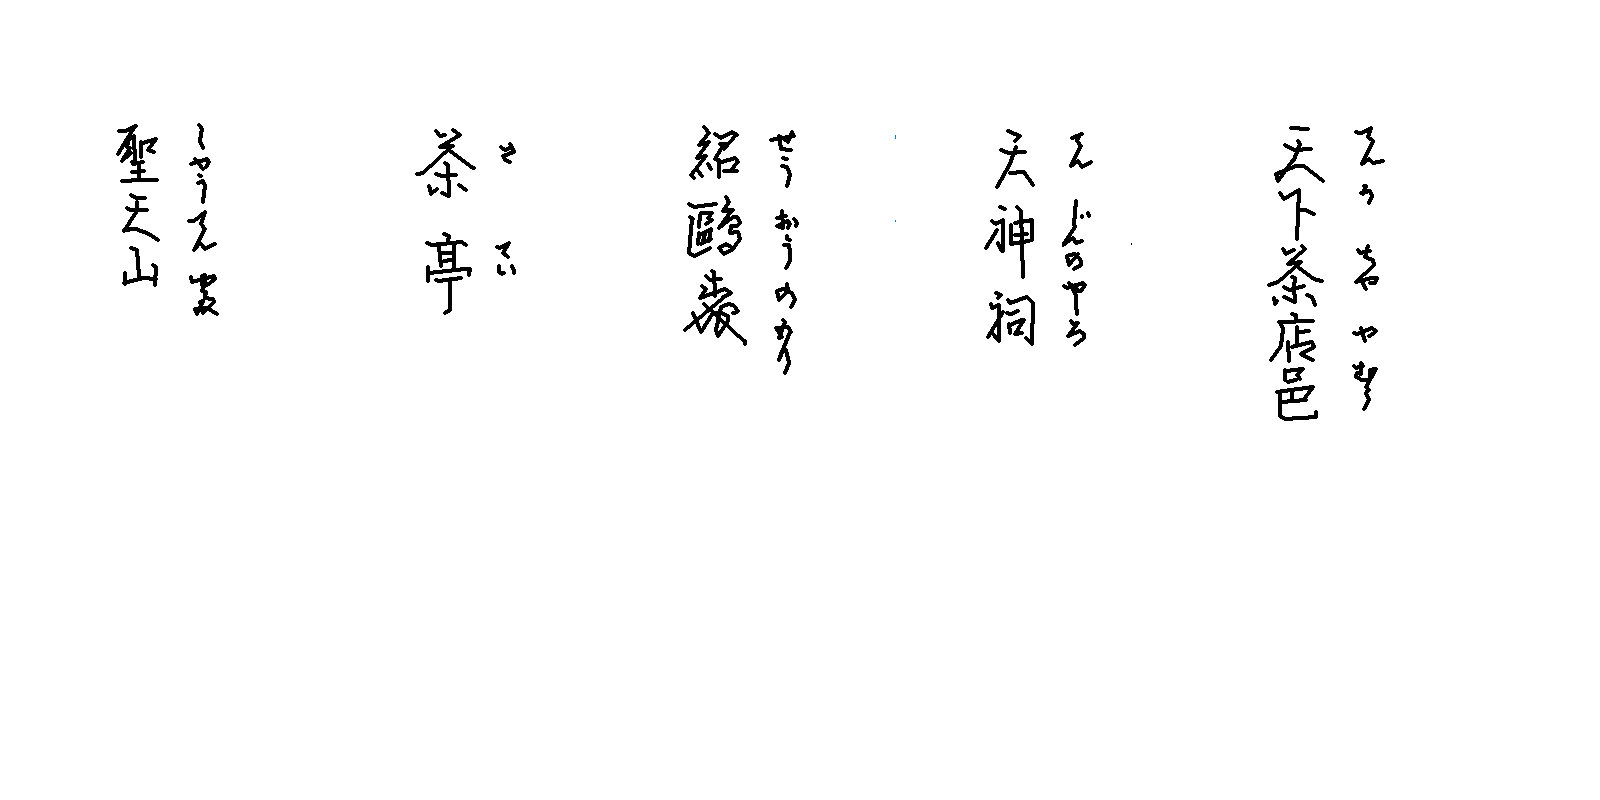 天下茶店邑
てんかちややむら
天神祠
てんじんのやしろ
紹鷗
せうおうのもり
茶亭
さてい
聖天山
しやうてんやま